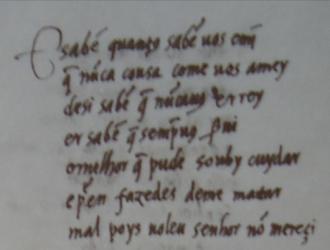 E sabē quantꝯ sabē uos om̄
q̄ nūca cousa come uos amey
desi sabē q̄ nūcauꝯ erroy
er sabē q̄ sempuꝯ serui
omelhor q̄ pude souby cuydar
epēr fazedes deme matar
mal poys uoleu senhor nō mereçi